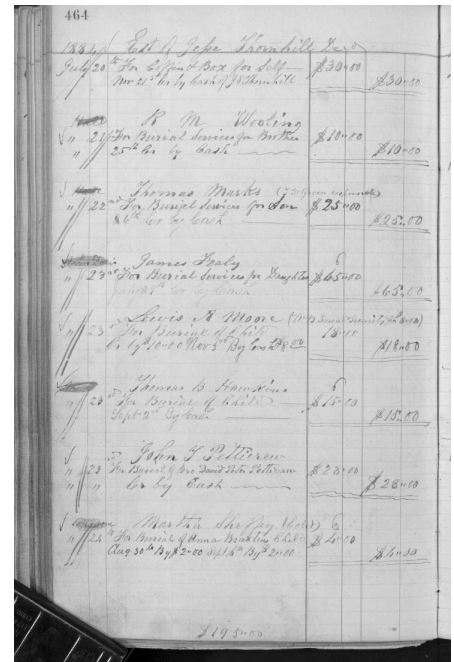 464
1884 Est of Jesse Thornhill Decd
July 20 For Coffin & Box for Self $30.00
Nov 21st Cr by Cash of Thornhill $30.00
R M Wooling
" 21 For Burial Services for Brother $10.00
25th Cr by Cash $10.00
Thomas Marks
" 22 For Burial Services for Son $25.00
Cr by Cash $25.00
James Fealy
" 23 For Burial Services for Daughter $65.00
Cr by Cash $65.00
Lewis A Moore
" 23 For Burial of Child 18.00
Cr by $10.00 Nov 3rd By Cash $8.00 $18.00
Thomas B Hawkins
" 23 For Burial of Child $15.00
Sept 2nd By Cash $15.00
John T Petticrew
" 23 For Burial of Bro David Petticrew $28.00
" " Cr by Cash $28.00
Martha
" 24 For Burial of Anna Child $4.00
Aug 30th By $2.00 Sept 6th By $2.00 $4.00
$195.00